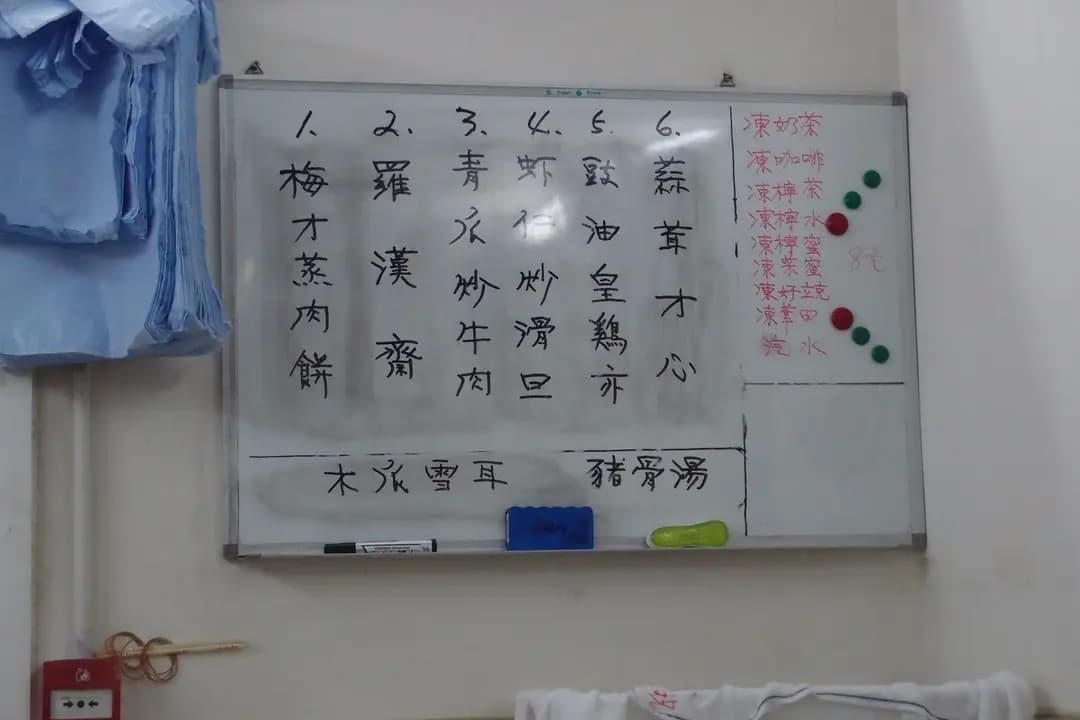 1. 梅才蒸肉餅
2. 羅漢齋
3. 青瓜炒牛肉
4. 虾仁炒滑旦
5. 豉油皇鷄亦
6. 蒜茸才心
木瓜雪耳 豬骨湯
凍奶茶
凍咖啡
凍檸茶
凍檸水
凍檸蜜
凍茶蜜
凍好立克
凍華田
汽水
8元